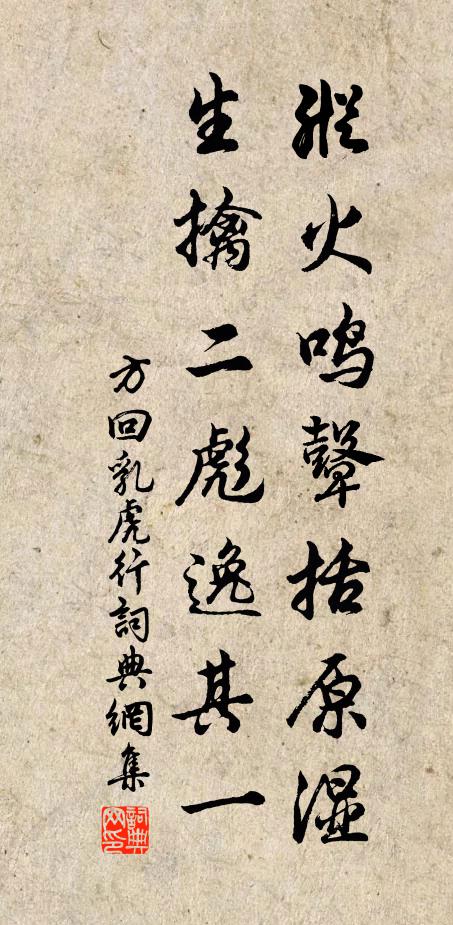 縱火鸣鼙括原湿
生擒二彪逸其一
方回乳虎行詞典網集
詞典网印